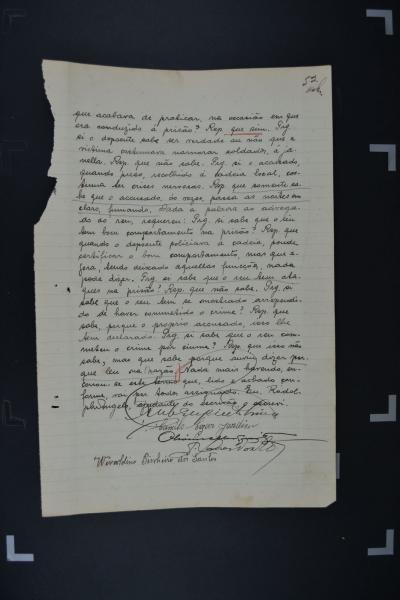 52
que acabava de praticar, na occasião em que
era conduzido á prisão? Resp. que sim. Prg.
si o depoente sabe ser verdade ou não que a
victima costumava namorar soldados, á ja-
nella. Resp. que não sabe. Prg. si o accusado,
quando preso, recolhido á cadeia local, cos-
tuma ter crises nervosas. Resp. que somente sa-
be que o accusado, ás vezes, passa as noites em
claro, fumando. Dada a palavra ao advoga-
do do réu, requereu: Prg. si sabe que o réu
tem bom comportamento na prisão? Resp. que
quando o depoente policiava a cadeia, poude
certificar o bom comportamento, mas que a-
gora, tendo deixado aquellas funcções, nada
pode dizer. Prg. si sabe que o réu tem ata-
ques na prisão? Resp. que não sabe. Prg. si
sabe que o réu tem se mostrado arrependi-
do de haver commettido o crime? Resp. que
sabe, porque o proprio accusado, isso lhe
tem declarado. Prg. si sabe que o réu com-
metteu o crime por ciume? Resp. que isso não
sabe, mas que sabe porque ouviu dizer por-
que leu na "Razão". Nada mais havendo, en-
cerrou-se este termo que, lido e achado con-
forme, vai por todos assignado. Eu,
ajudante do escrivão o escrevi.
Weraldino Pinheiro dos Santos